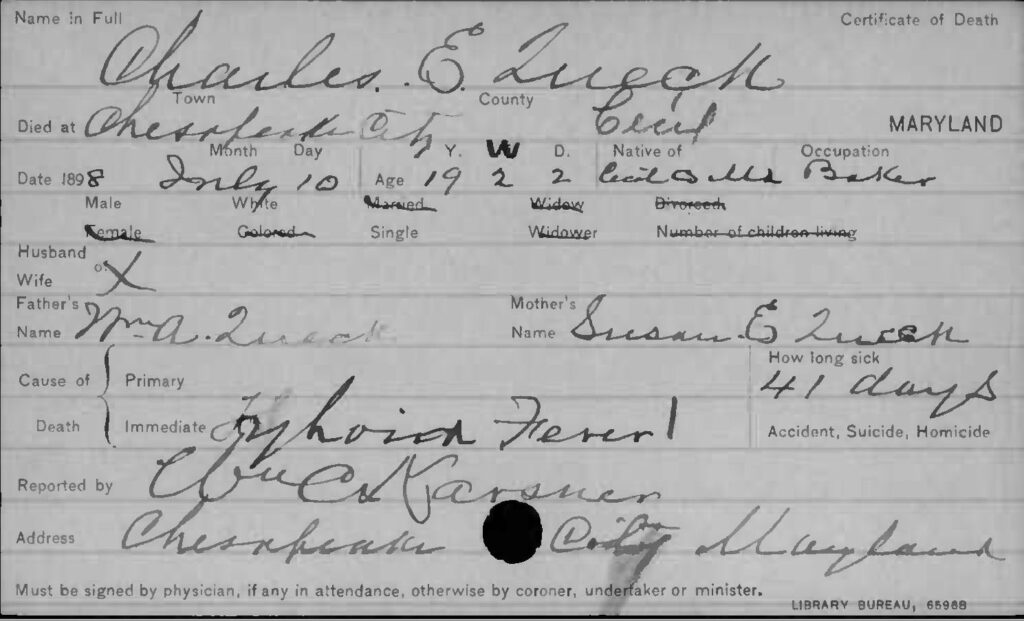 Name in Full Certificate of Death
Charles. E. Queck
Town County
Died at Chesapeake City Cecil MARYLAND
Month Day Y. W D. Native of Occupation
Date 1898 July 10 Age 19 2 2 Cecil Co Md Baker
Male White Married Widow Divorced
Female Colored Single Widower Number of children living
Husband
of X
Wife
Father's Mother's
Name Wm A. Queck Name Susan. E Queck
How long sick
Cause of Primary 41 days
Death Immediate Typhoid Fever Accident, Suicide, Homicide
Reported by Wm C Karsner
Address Chesapeake City Maryland
Must be signed by physician, if any in attendance, otherwise by coroner, undertaker or minister.
LIBRARY BUREAU, 65968